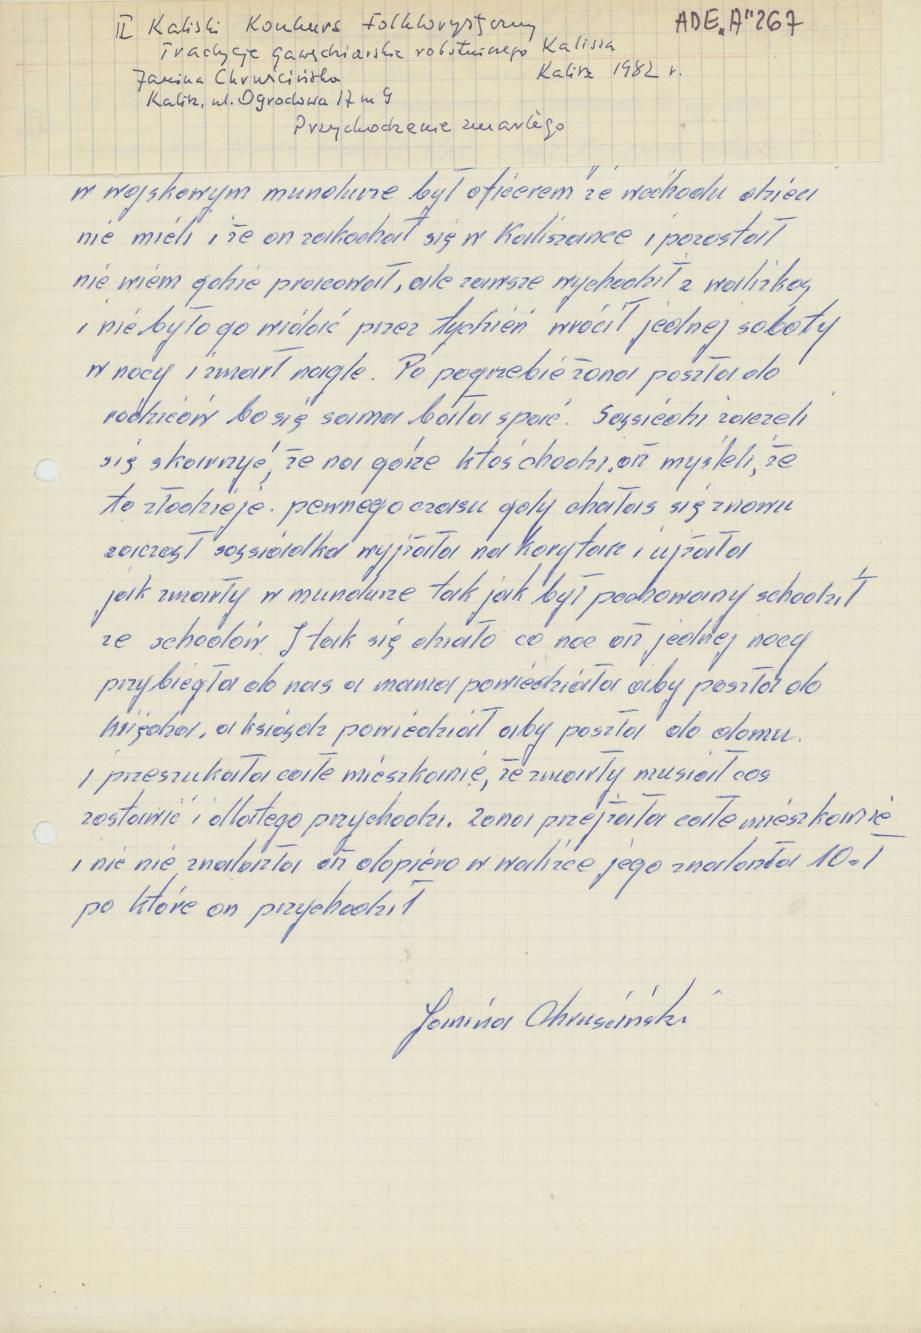 II Kaliski Konkurs Folklorystyczny
ADE „A" 267
Tradycje gawędziarskie robotniczego Kalisza
Janina Chruścińska
Kalisz 1982 r.
Kalisz, ul. Ogrodowa 17 m 9
Przychodzenie zmarłego
w wojskowym mundurze był oficerem ze wschodu dzieci
nie mieli i że on zakochał się w Kaliszance i pozostał
nie wiem gdzie pracował, ale zawsze wychodził z walizką
i nie było go widać przez tydzień wrócił jednej soboty
w nocy i zmarł nagle. Po pogrzebie żona poszła do
rodziców bo się sama bała spać. Sąsiedzi zaczeli
się skarżyć, że na górze ktoś chodzi, aż myśleli, że
to złodzieje. pewnego czasu gdy chałas się znowu
zaczął sąsiadka wyjrzała na korytarz i ujrzała
jak zmarły w mundurze tak jak był pochowany schodził
ze schodów. I tak się działo co noc aż jednej nocy
przybiegła do nas a mama powiedziała aby poszła do
księdza, a ksiądz powiedział aby poszła do domu.
i przeszukała całe mieszkanie, że zmarły musiał coś
zostawić i dlatego przychodzi. Żona przejrzała całe mieszkanie
i nic nie znalazła aż dopiero w walizce jego znalazła 10 zł
po które on przychodził
Janina Chruściński